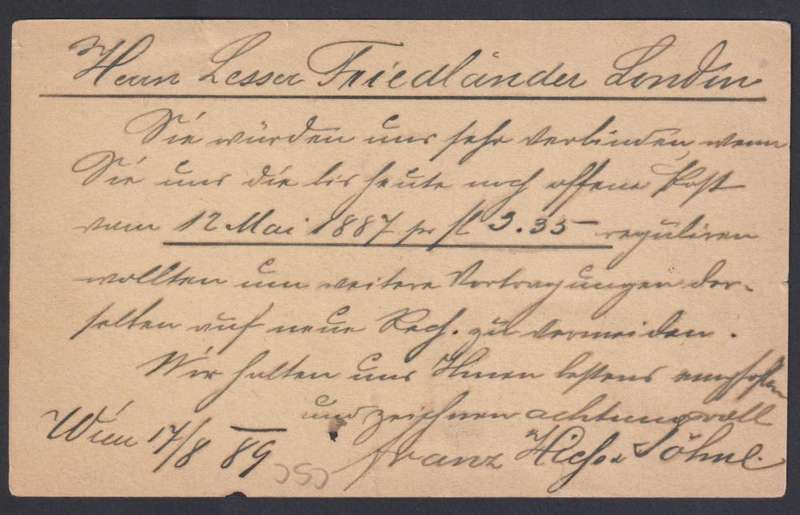 Herrn Lesser Friedländer London
Sie würden uns sehr verbinden, wenn
Sie uns die bis heute noch offene Post
vom 12 Mai 1887 per fl 3.35 reguliren
wollten um weitere Vortragungen der-
selben auf neue Rech. zu vermeiden.
Wir halten uns Ihnen bestens empfohlen
und zeichnen achtungsvoll
Wien 17/8 89 Franz Söhne